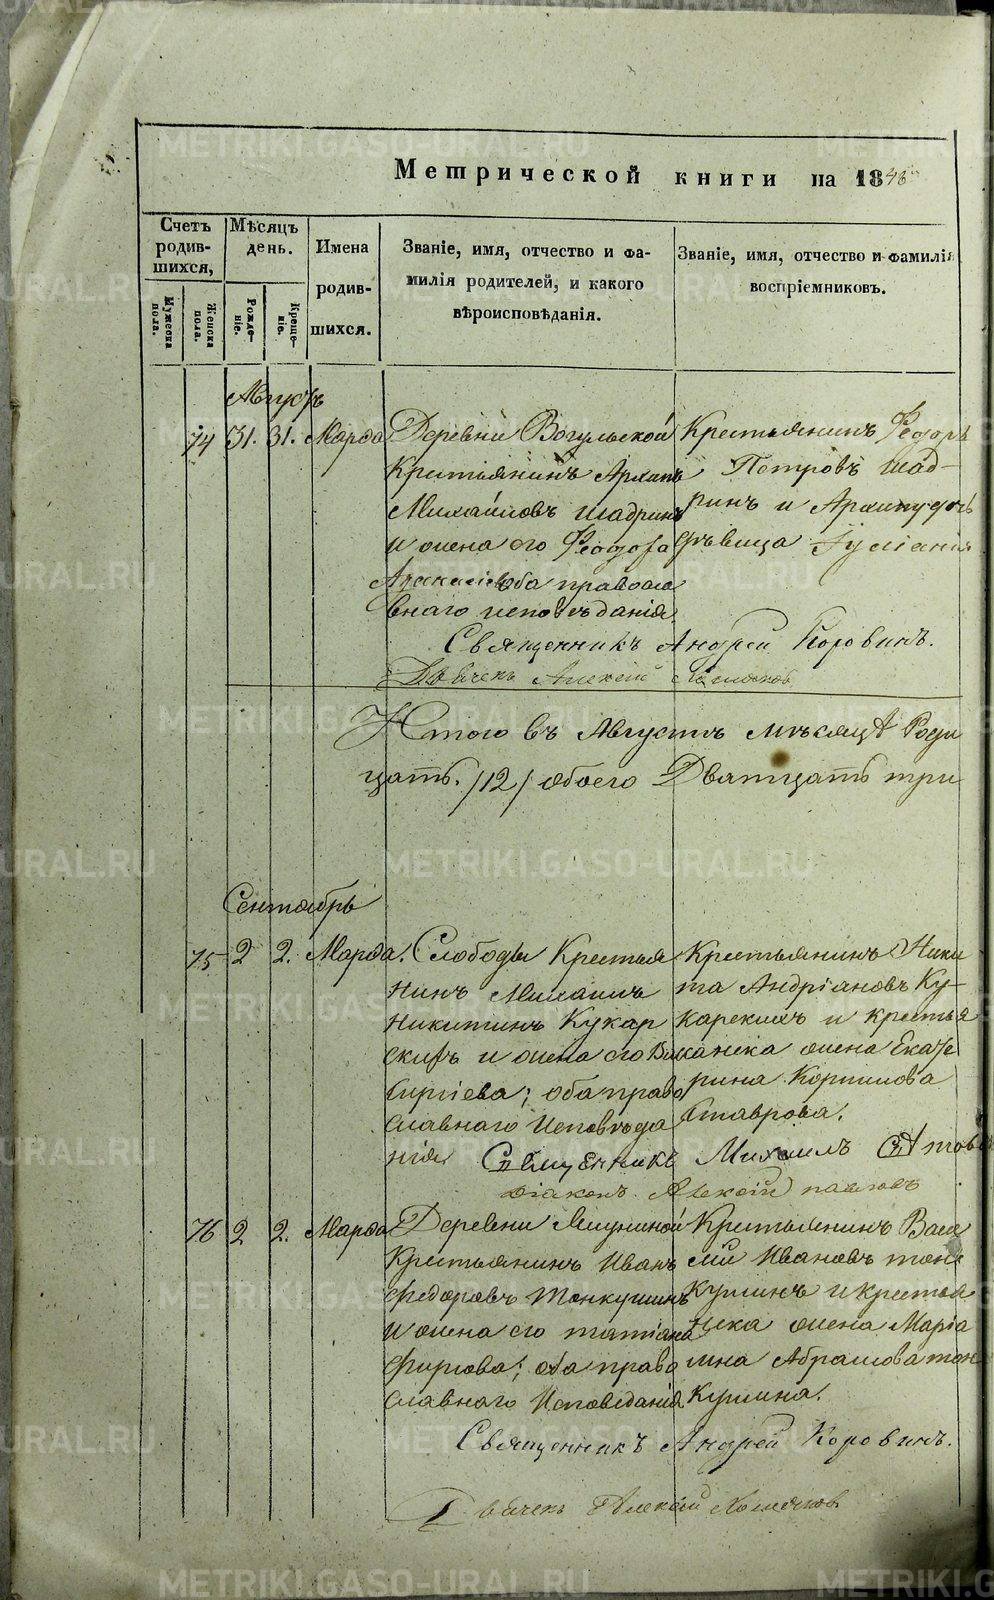 Метрической книги на 1848
Счетъ родив-шихся,
Мужеска пола.
Женска пола.
Мѣсяцъ день.
Рожде-ніе.
Креще-ніе.
Имена родив-шихся.
Званіе, имя, отчество и фа-
милія родителей, и какого
вѣроисповѣданія.
Званіе, имя, отчество и фамилія
воспріемниковъ.
Августъ
74 31. 31. Марѳа
Деревни Вогульской
Крестьянинъ Архипъ
Михайловъ Шадринъ
и жена его Ѳеодора
оба правосла
внаго исповѣданія
Крестьянинъ Ѳедоръ
Петровъ Шад-
ринъ и дочь
дѣвица Іуліанія
Священникъ Андрей Коровинъ.
Алексій
Итого въ Августѣ мѣсяцѣ Роди
цать. /12/ обоего Двятцать три
Сентябрь
75 2 2. Марѳа.
Слободы Крестья
нинъ Михаилъ
Никитинъ Кукар
скихъ и жена его
Сергіева; оба право
славнаго Исповѣда
нія
Крестьянинъ Ники
та Андріановъ Ку-
карскихъ и крестья
нска жена Екате
рина Корнилова
Ставрова.
Священникъ Михаилъ
Діаконъ Алексій Павловъ
76 2 2. Марѳа
Деревни
Крестьянинъ Иванъ
Федоровъ Тонкушинъ
и жена его Татіана
Фирсова; оба право
славнаго Исповѣданія
Крестьянинъ Васи
лій Ивановъ Тон
кушинъ и крестья
нска жена Маріа
мна Абрамова Тон
кушина.
Священникъ Андрей Коровинъ.
Алексій
METRIKI.GASO-URAL.RU